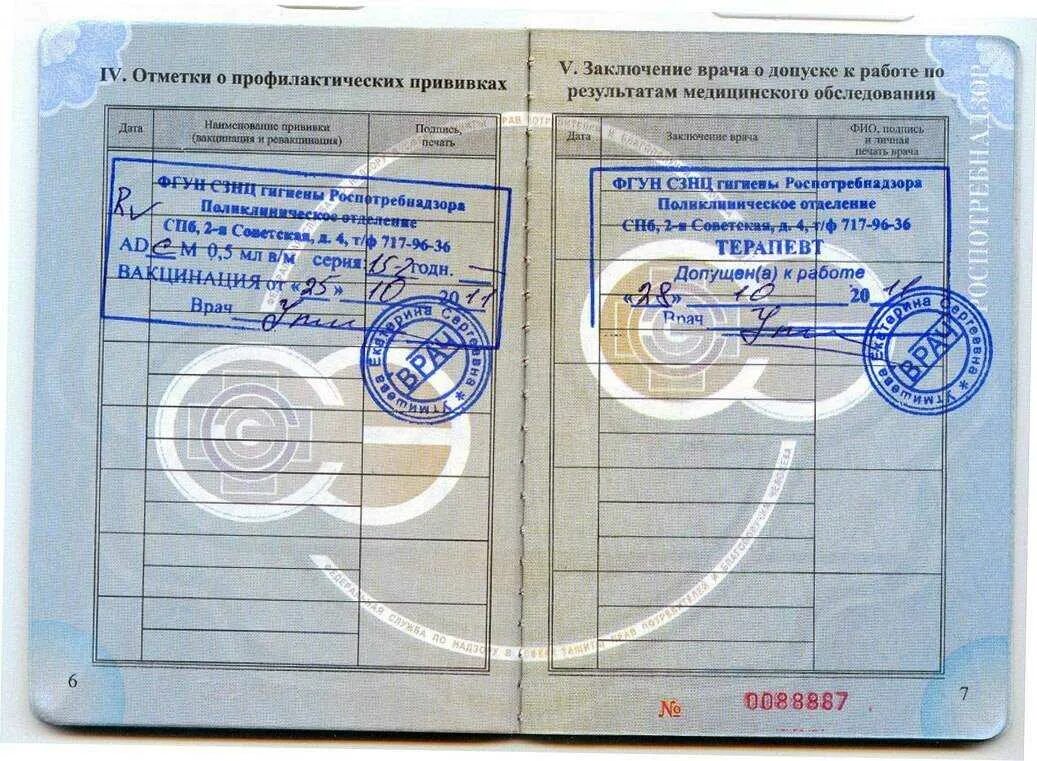 IV. Отметки о профилактических прививках
Дата
Наименование прививки
(вакцинация и ревакцинация)
Подпись,
печать
ФГУН СЗНЦ гигиены Роспотребнадзора
Поликлиническое отделение
СПб, 2-я Советская, д. 4, т/ф 717-96-36
RV
ADС М 0,5 мл в/м серия: 15-7 годн.
ВАКЦИНАЦИЯ от «25» 10 2011
Врач
Утмишева Екатерина Сергеевна *
ВРАЧ
ФЕДЕРАЛЬНАЯ СЛУЖБА ПО НАДЗОРУ В СФЕРЕ ЗАЩИТЫ ПРАВ ПОТРЕБИТЕЛЕЙ И БЛАГОПОЛУЧИЯ ЧЕЛОВЕКА
6
V. Заключение врача о допуске к работе по
результатам медицинского обследования
Дата
Заключение врача
ФИО, подпись
и личная
печать врача
ФГУН СЗНЦ гигиены Роспотребнадзора
Поликлиническое отделение
СПб, 2-я Советская, д. 4, т/ф 717-96-36
ТЕРАПЕВТ
Допущен(а) к работе
«28» 10 2011
Врач
Утмишева Екатерина Сергеевна *
ВРАЧ
РОСПОТРЕБНАДЗОР
№ 0088887
7